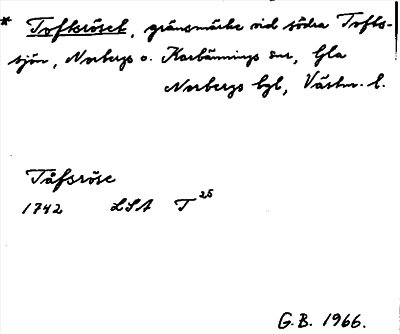 * Toftsröset, gränsmärke vid södra Tofts-
sjön, Norbergs o. Karbännings snr, Gla
Norbergs bgl, Västm. l.
Tåfsröse
1742 LSA T 25
G.B. 1966.